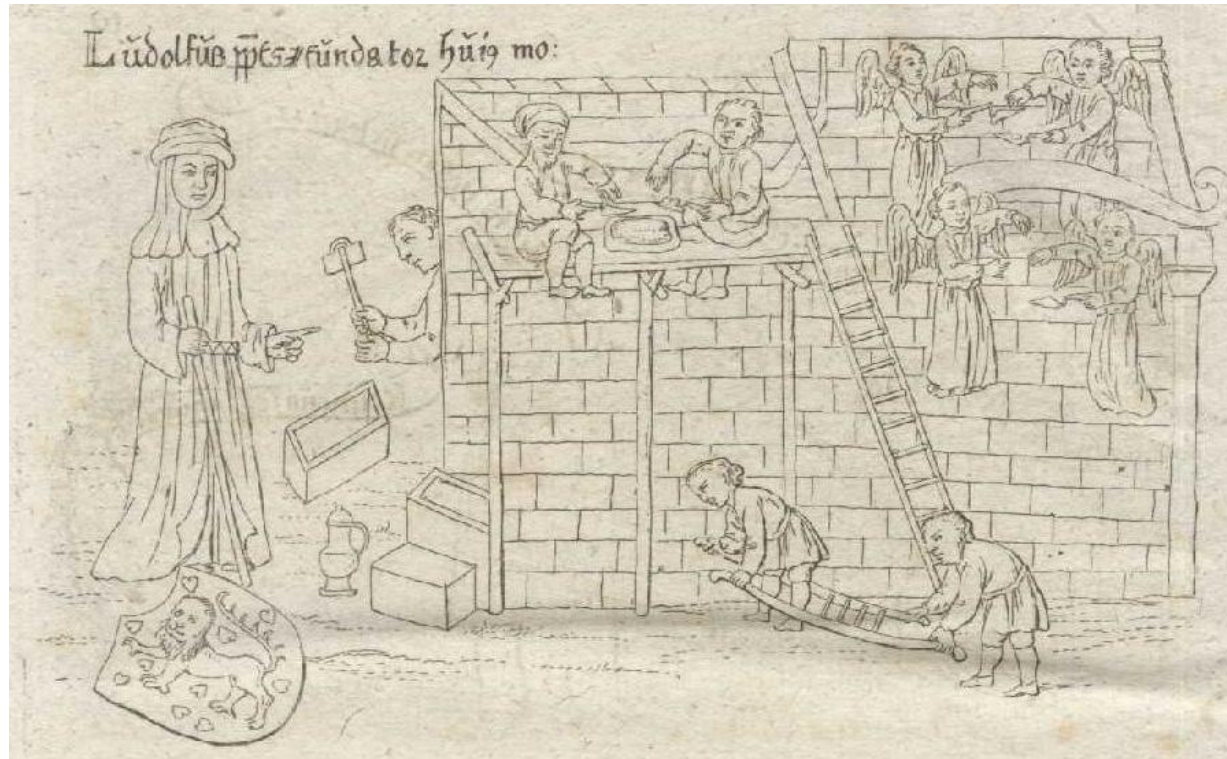 Lŭdolfŭs pp̄ts fŭndator hŭiꝰ mo: